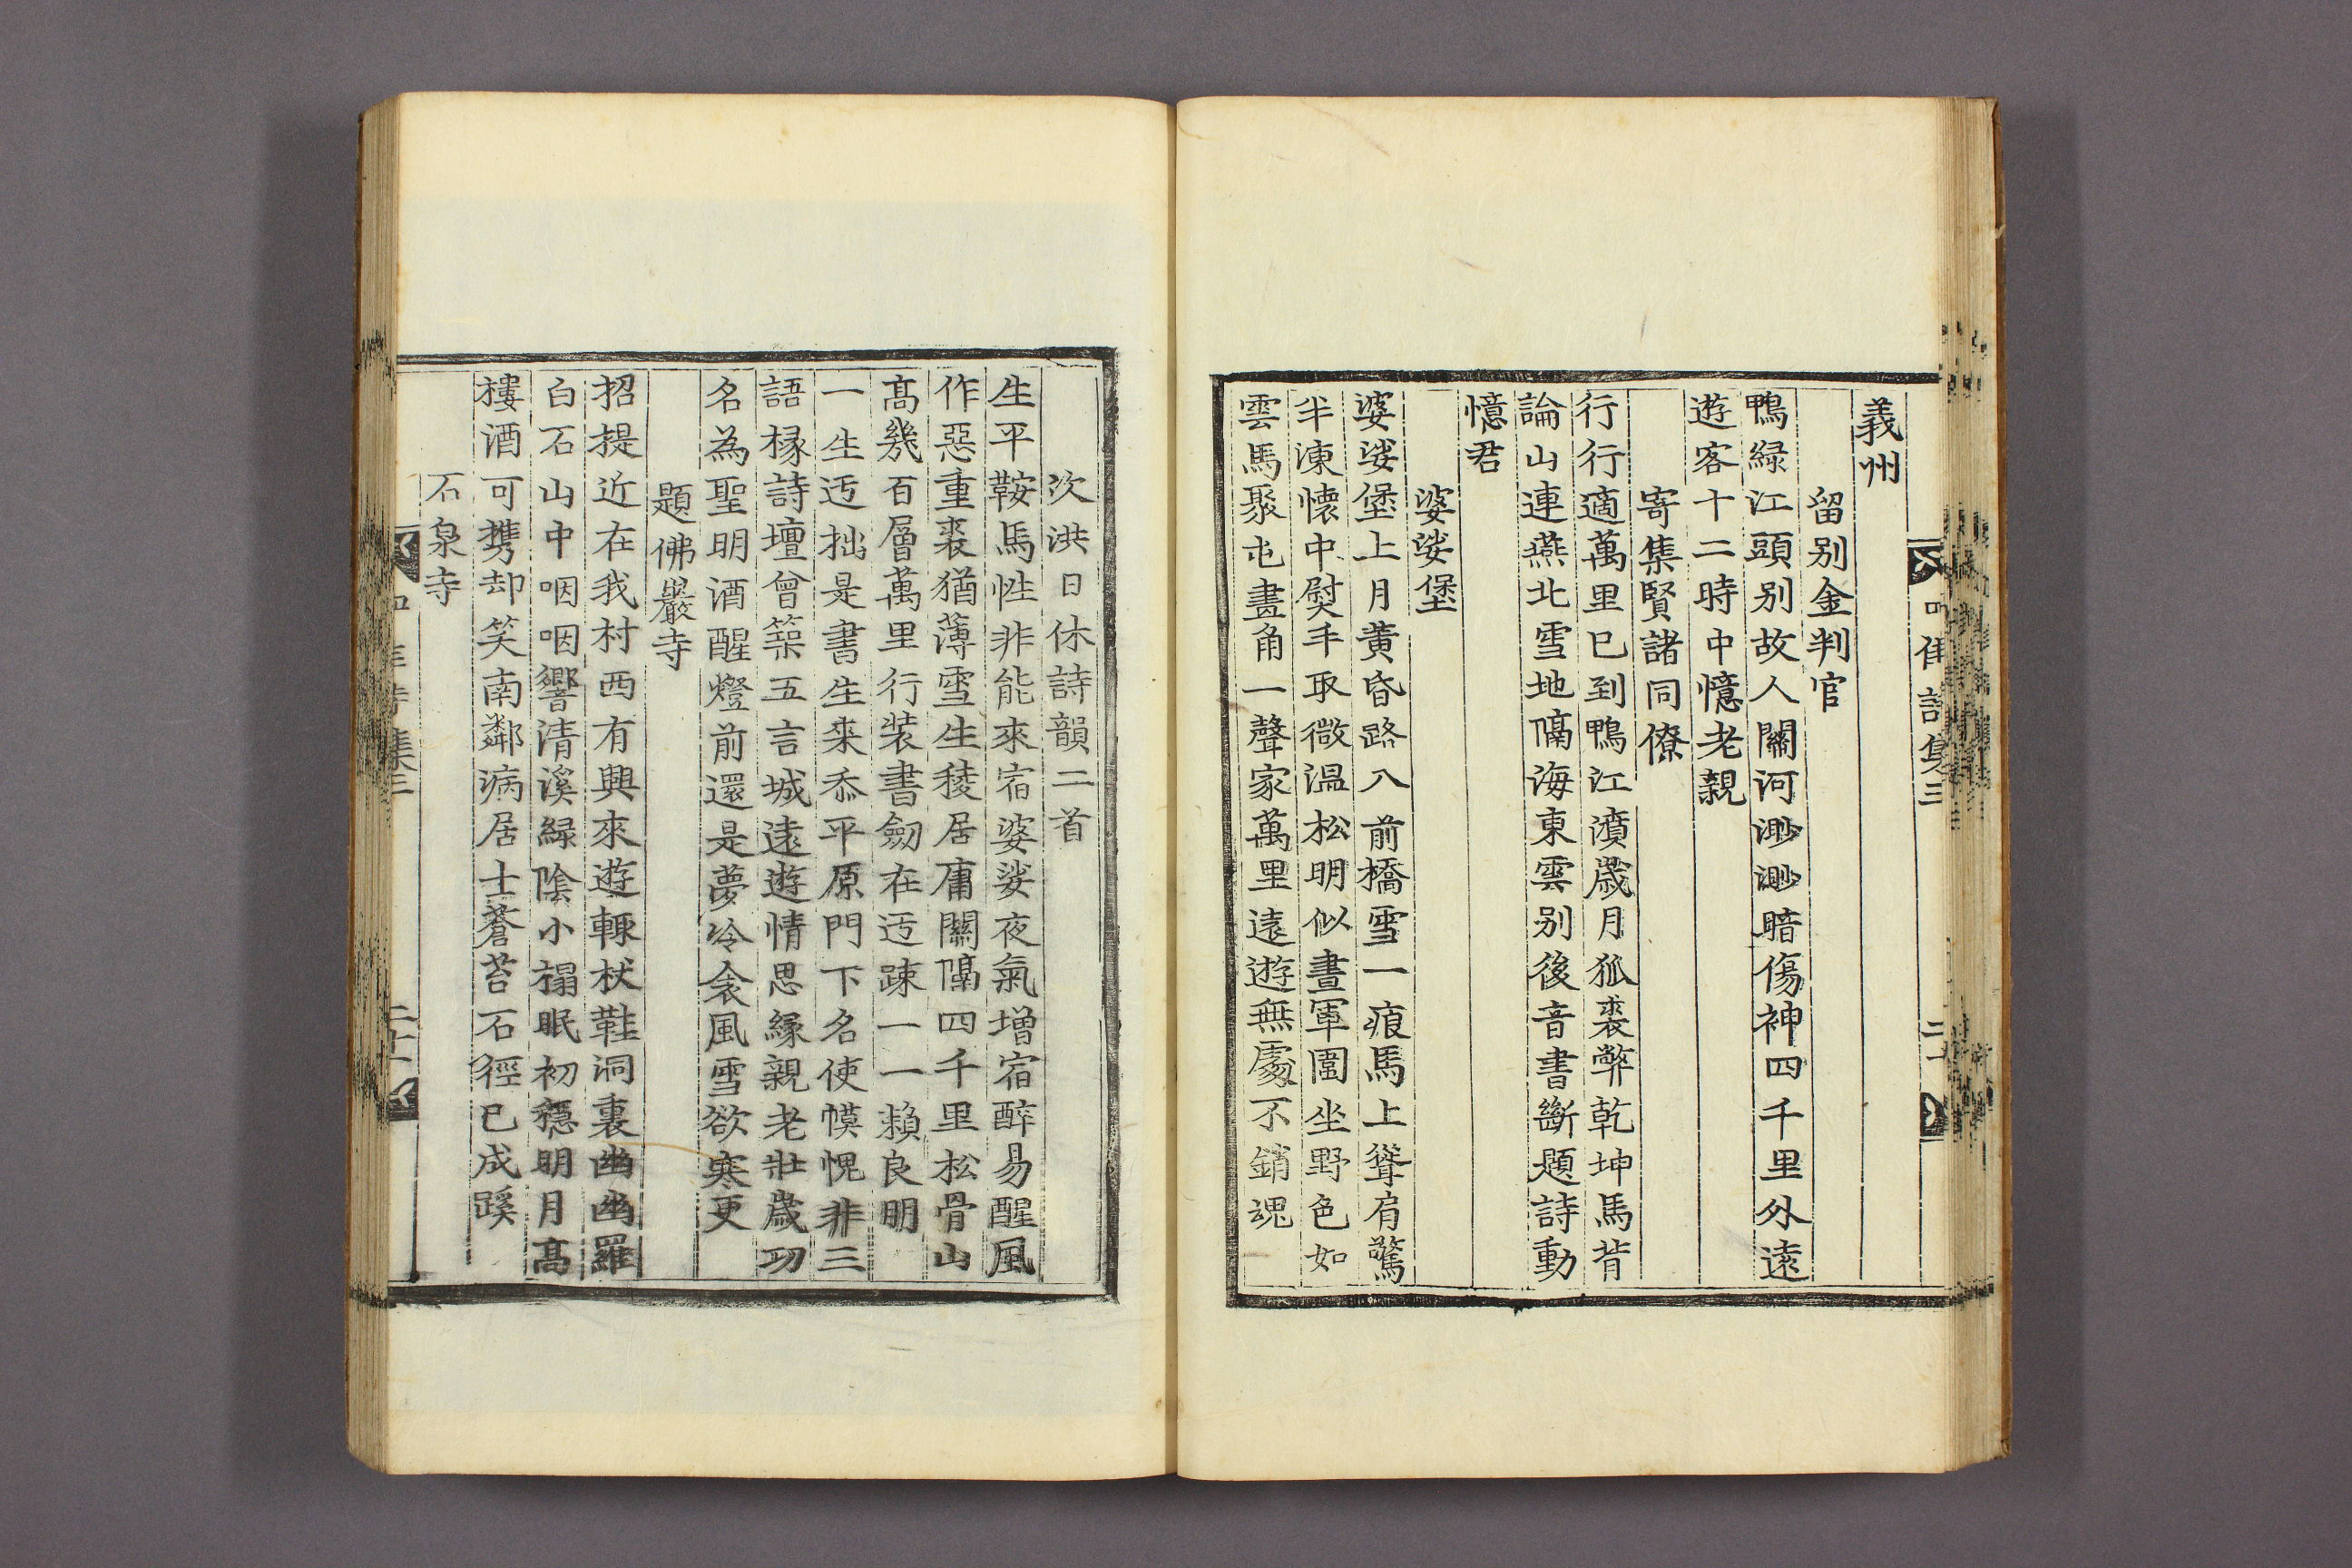 義州
留别金判官
鴨綠江頭别故人關河渺渺暗傷神四千里外遠
遊客十二時中憶老親
寄集賢諸同僚
行行適萬里已到鴨江濆歲月狐裘弊乾坤馬背
論山連燕北雪地隔海東雲别後音書斷題詩動
憶君
婆娑堡
婆娑堡上月黄昏路入前橋雪一痕馬上聳肩驚
半凍懷中熨手取微温松明似晝軍圍坐野色如
雲馬聚屯畫角一聲家萬里遠遊無處不銷魂
次洪日休詩韻二首
生平鞍馬性非能來宿婆娑夜氣增宿醉易醒風
作惡重裘猶薄雪生稜居庸關隔四千里松骨山
髙幾百層萬里行裝書劒在迂踈一一頼良明
一生迂拙是書生来忝平原門下名使幙愧非三
語椽詩壇曾築五言城遠遊情思緣親老壯歲功
名為聖明酒醒燈前還是夢冷衾風雪欲寒更
題佛巖寺
招提近在我村西有興來遊輒杖鞋洞裏幽幽羅
白石山中咽咽響清溪綠陰小榻眠初穩明月髙
樓酒可携却笑南鄰病居士蒼苔石徑已成蹊
石泉寺